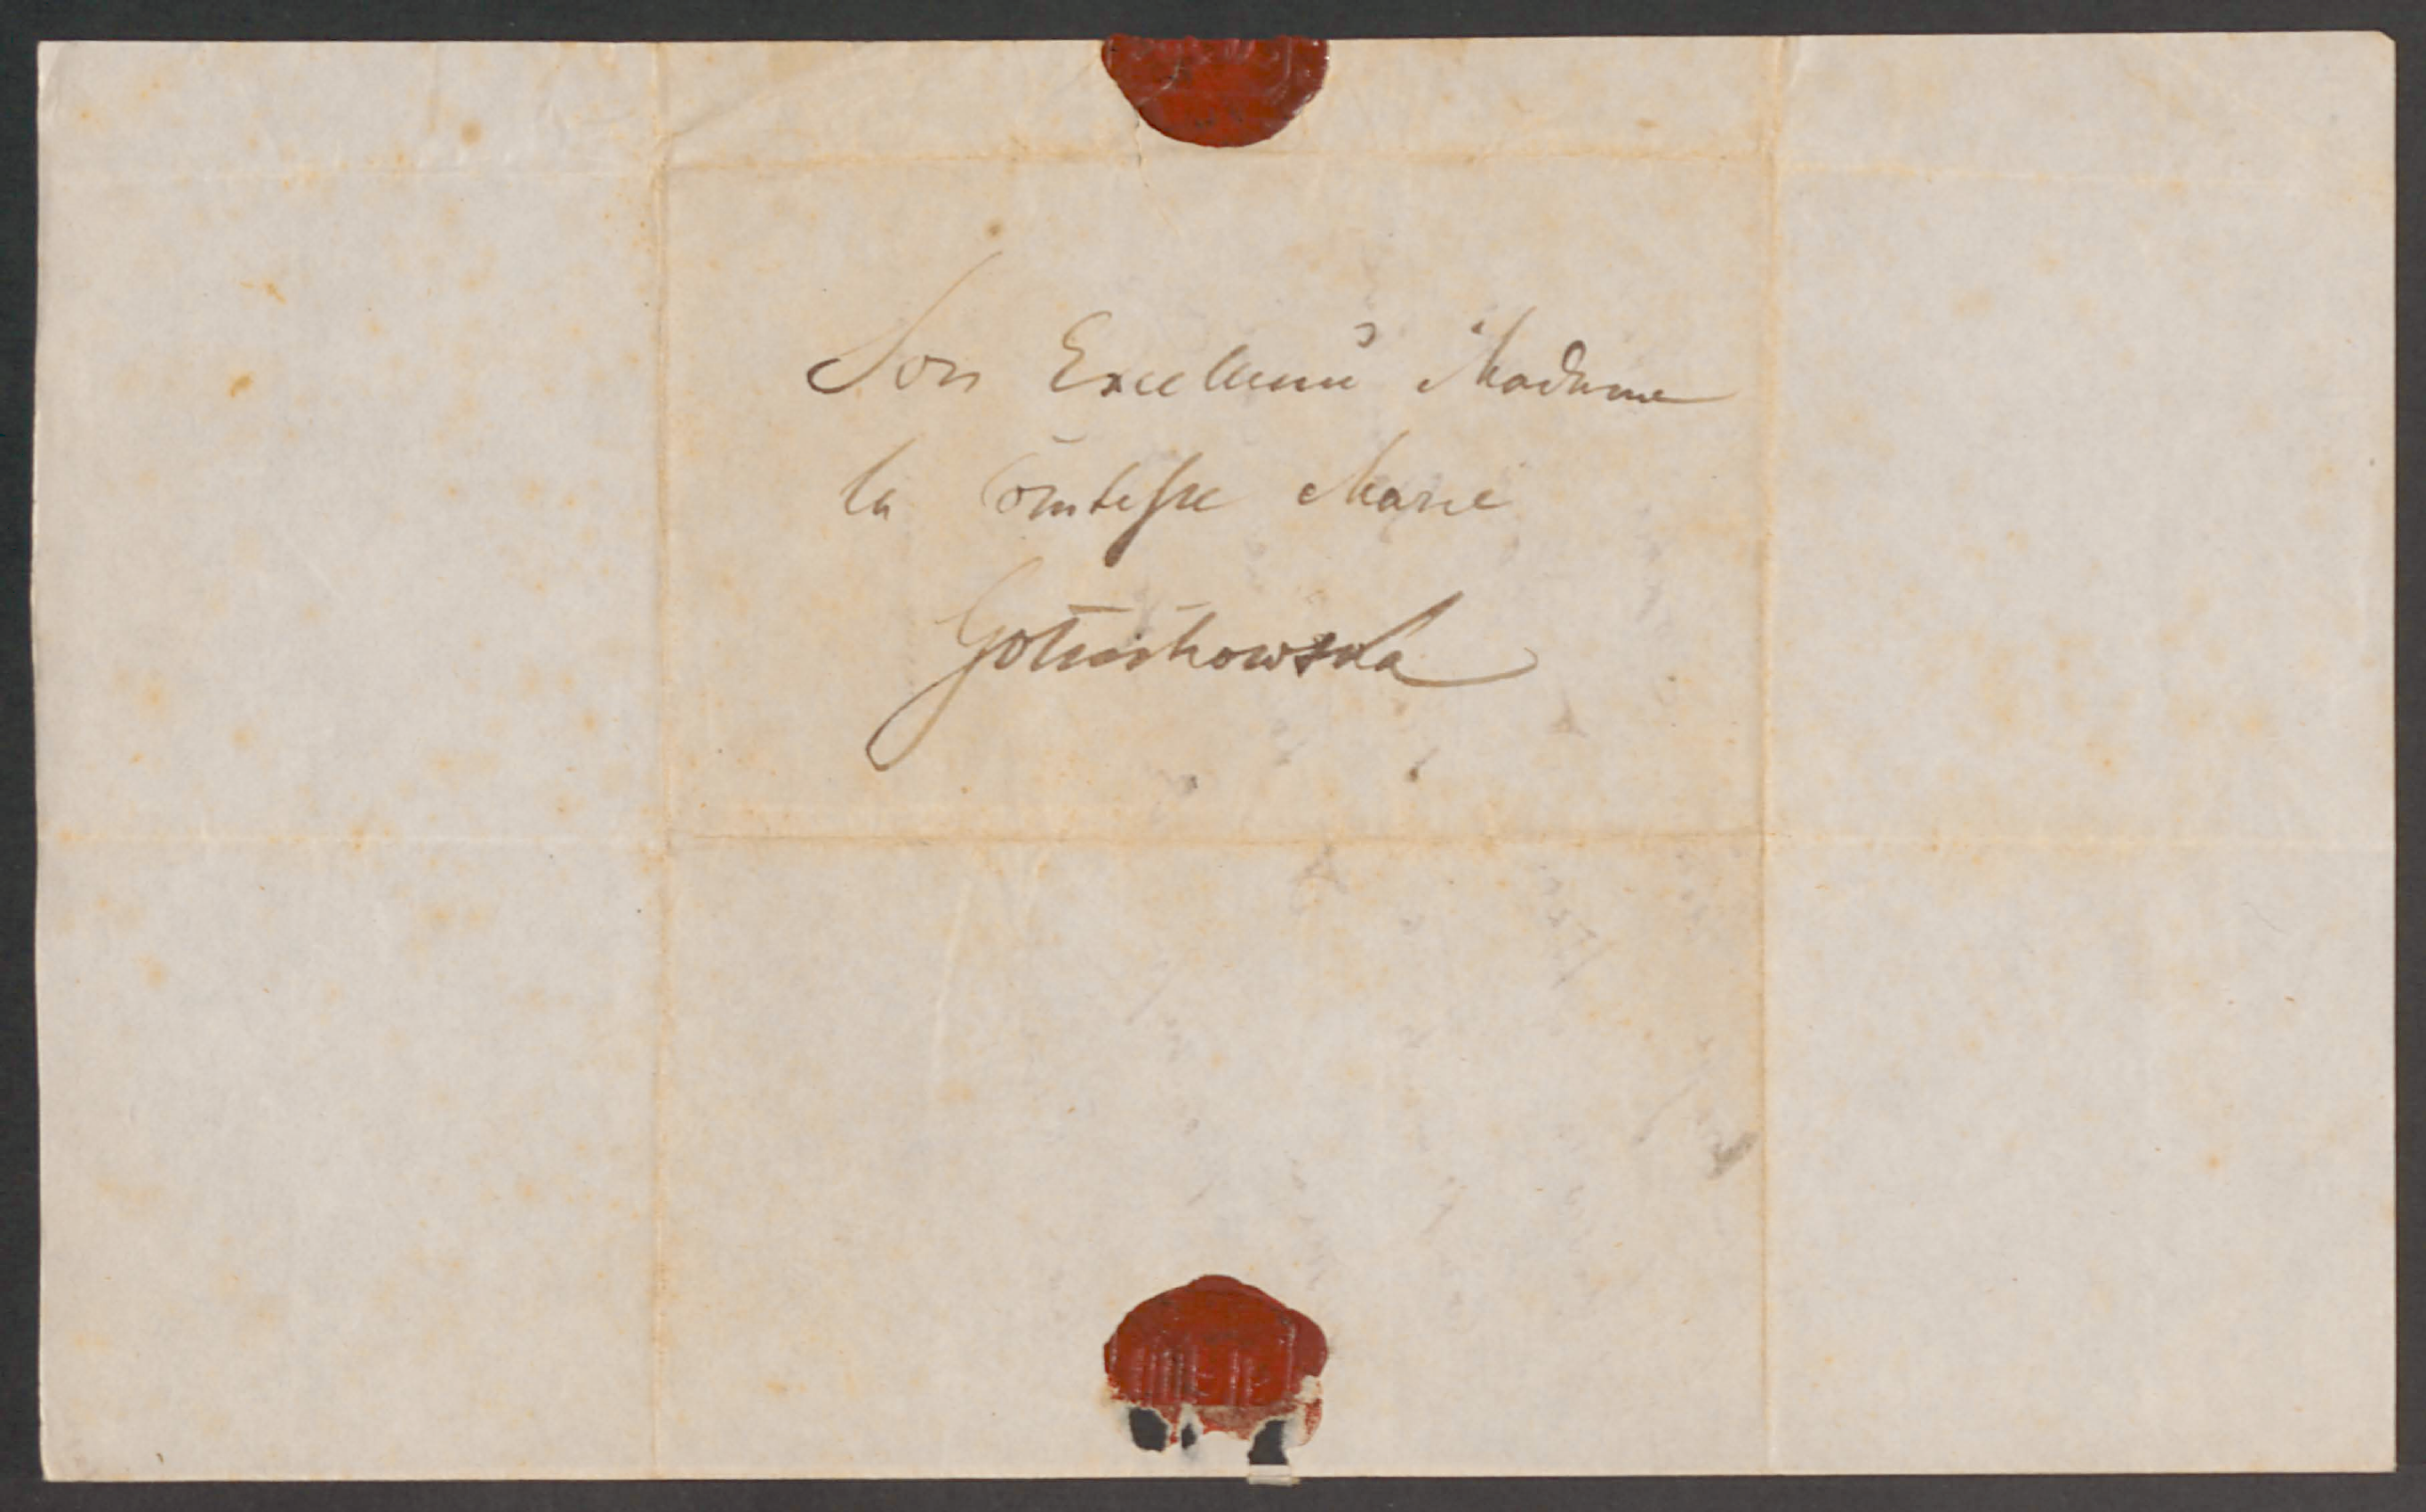 Son Excellence Madame
la Comtesse Marie
Gołuchowska